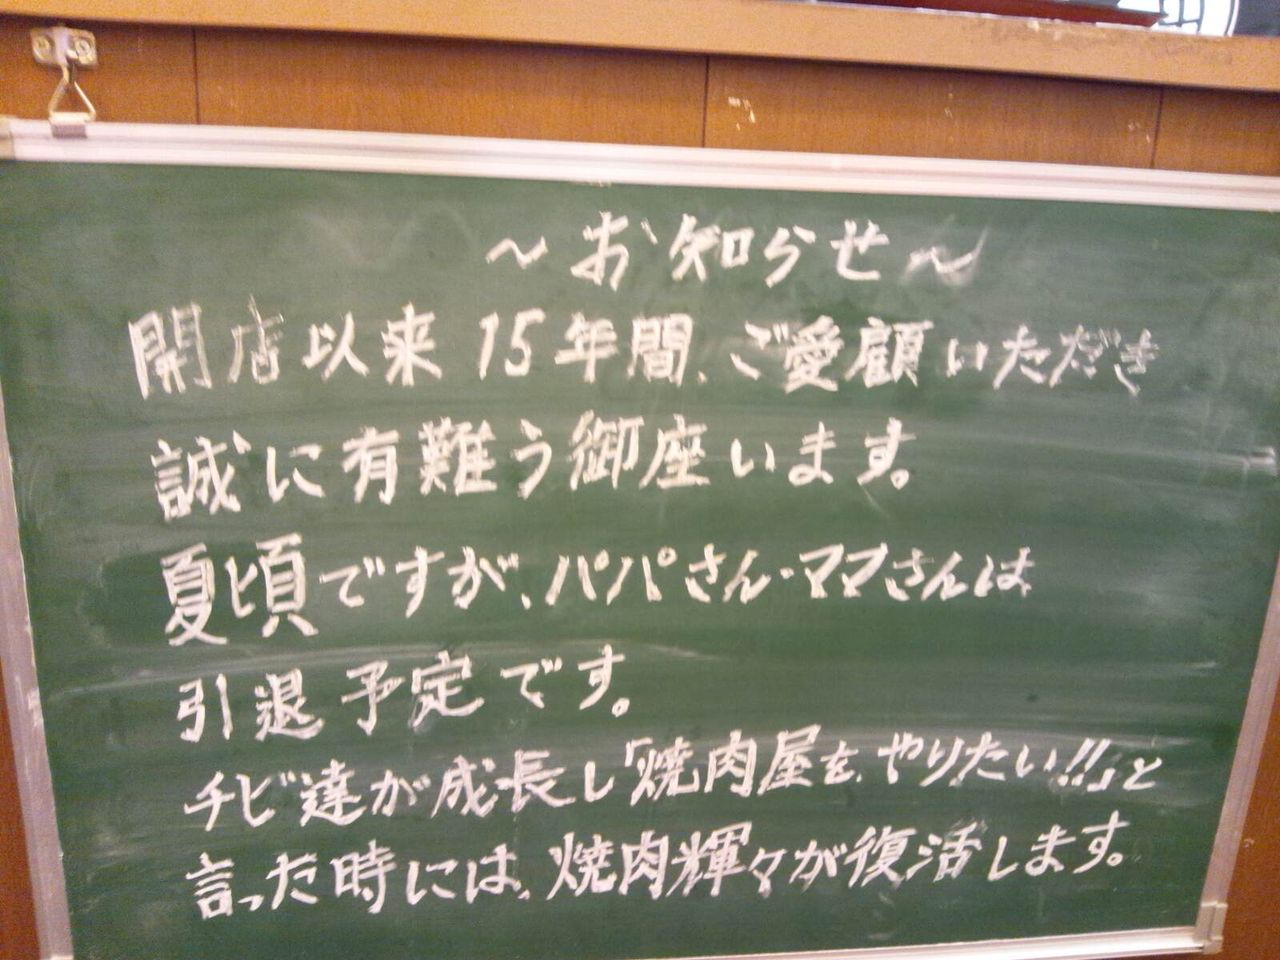 ～お知らせ～
開店以来15年間、ご愛顧いただき
誠に有難う御座います。
夏頃ですが、パパさん・ママさんは
引退予定です。
チビ達が成長し「焼肉屋を、やりたい!!」と
言った時には、焼肉輝々が復活します。